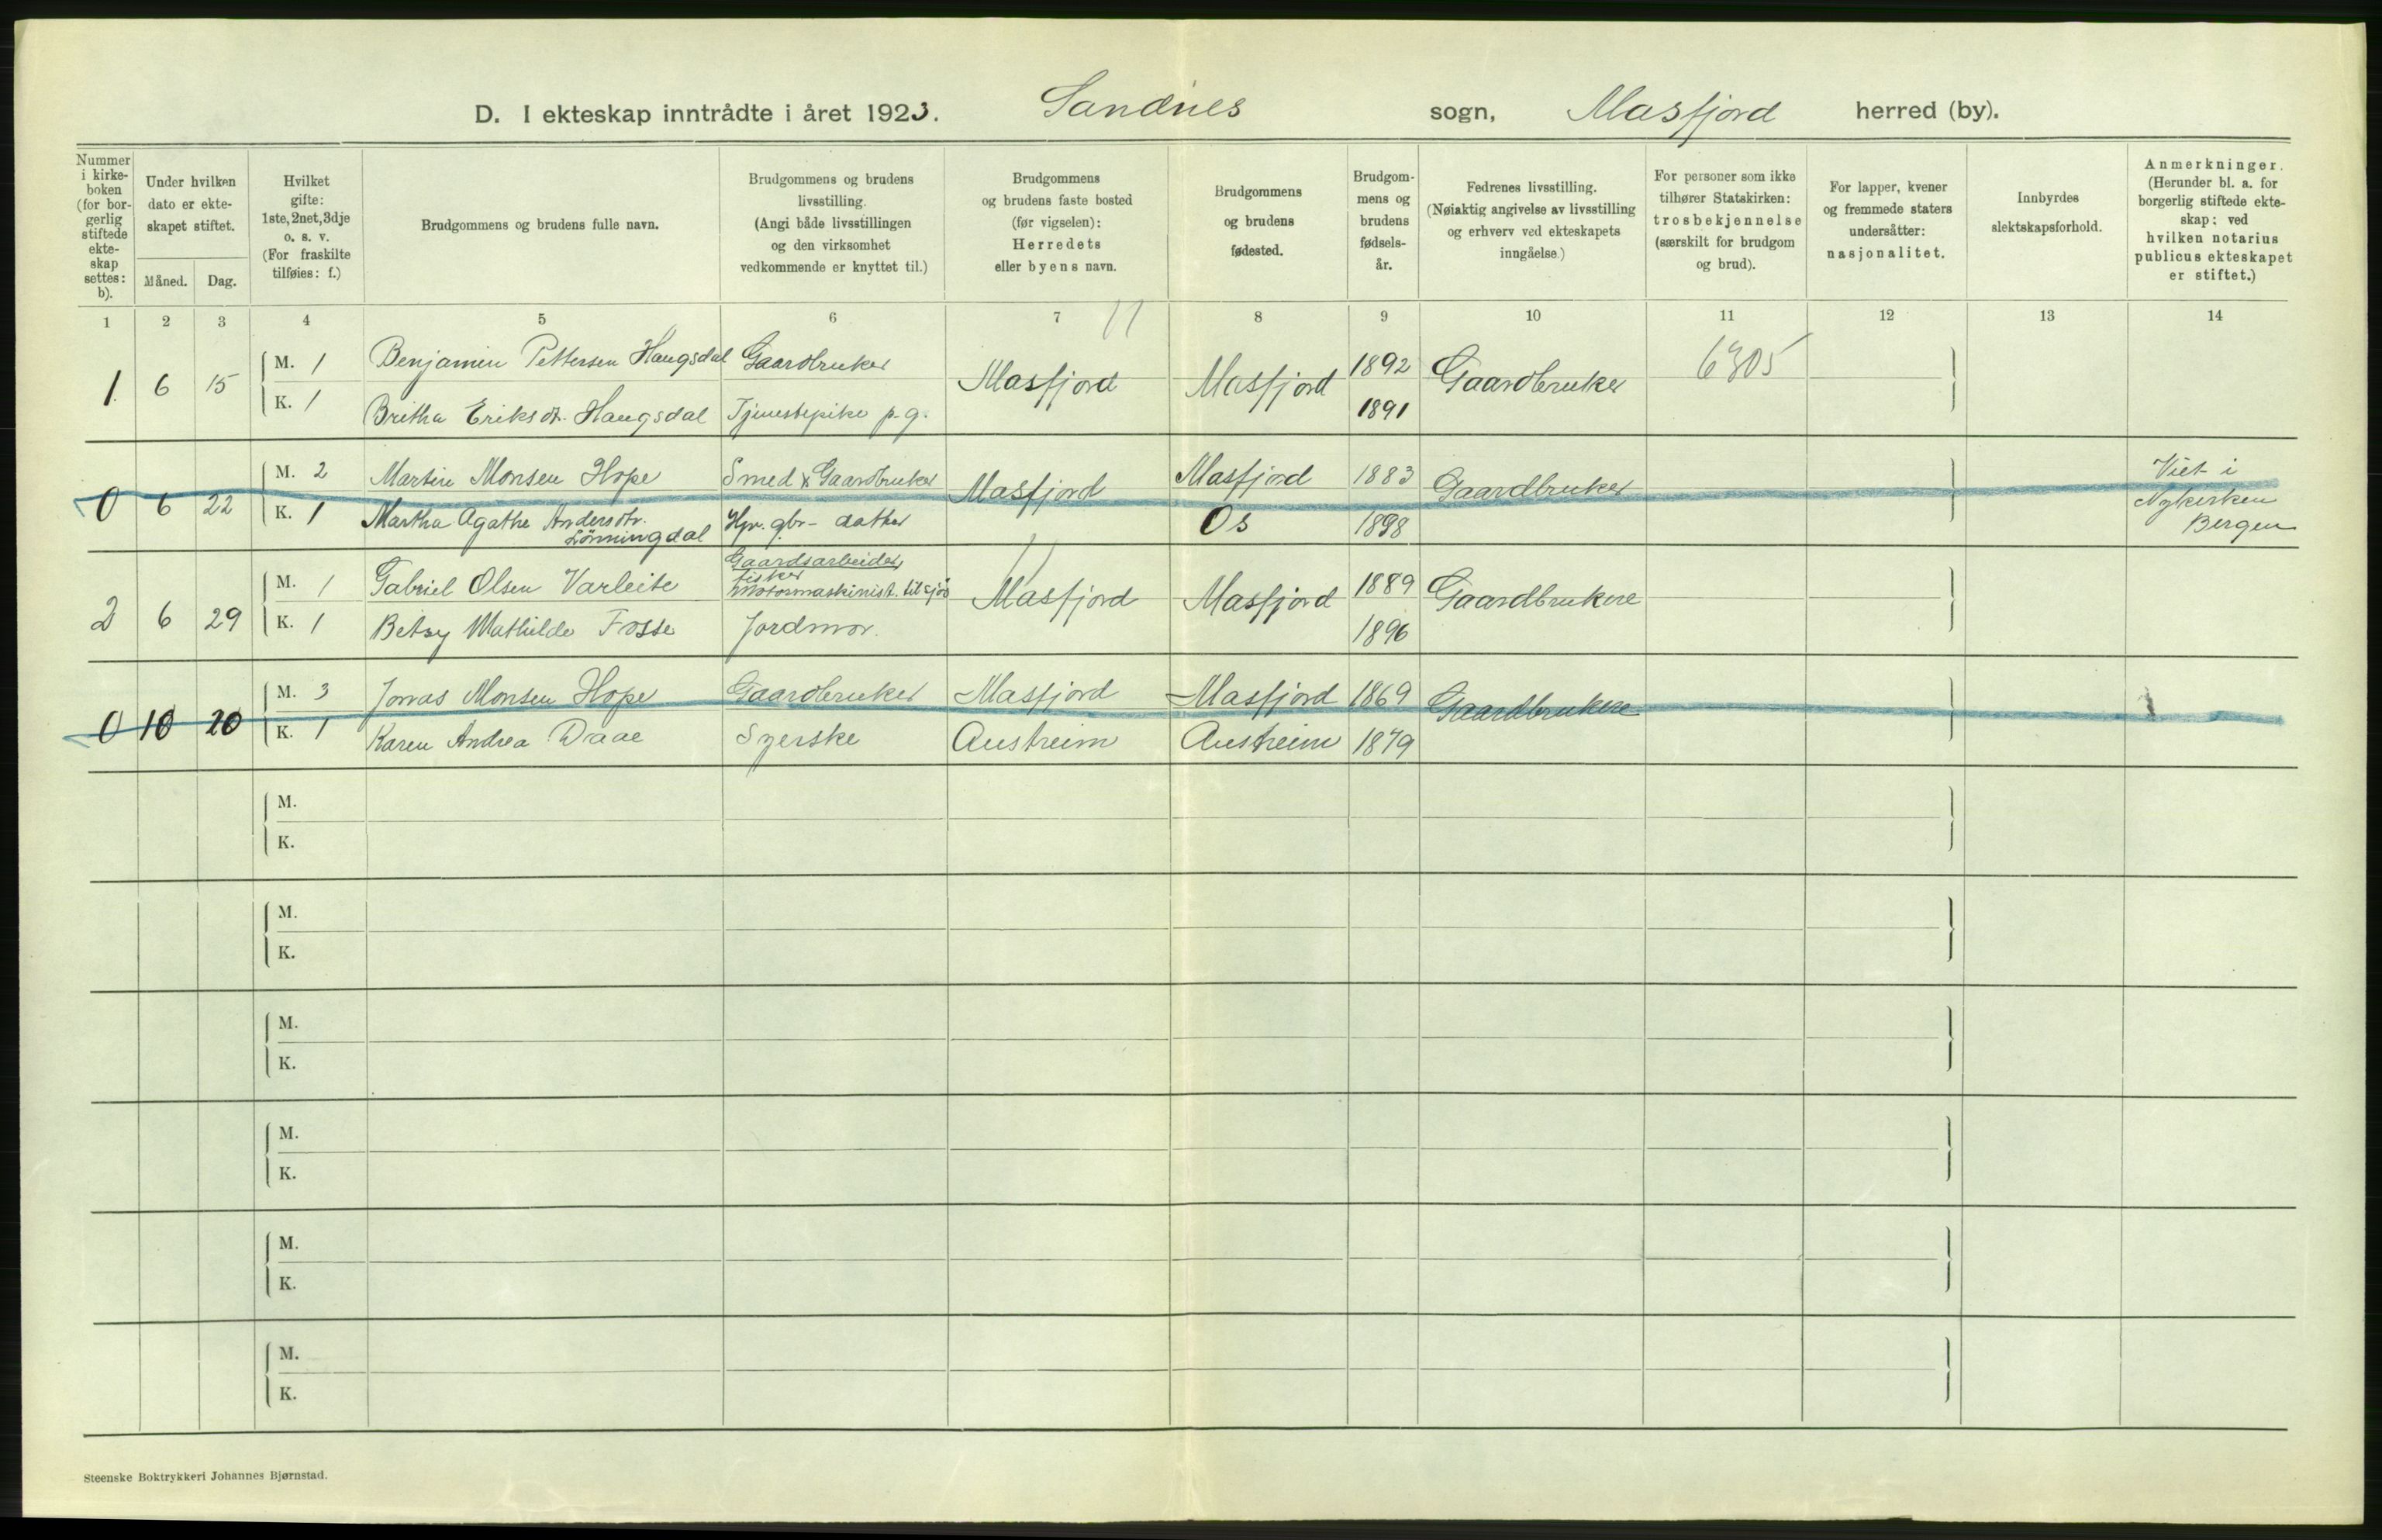 D. I ekteskap inntrådte i året 1923. Sandnes sogn, Masfjord herred (by).
Nummer i kirke- boken (for bor- gerlig stiftede ekte- skap settes: b).
Under hvilken dato er ekte- skapet stiftet.
Måned. Dag.
Hvilket gifte: 1ste, 2net, 3dje o. s. v. (For fraskilte tilføies: f.)
Brudgommens og brudens fulle navn.
Brudgommens og brudens livsstilling. (Angi både livsstillingen og den virksomhet vedkommende er knyttet til.)
Brudgommens og brudens faste bosted (før vigselen): Herredets eller byens navn.
Brudgommens og brudens fødested.
Brudgom- mens og brudens fødsels- år.
Fedrenes livsstilling. (Nøiaktig angivelse av livsstilling og erhverv ved ekteskapets inngåelse.)
For personer som ikke tilhører Statskirken: trosbekjennelse (særskilt for brudgom og brud).
For lapper, kvener og fremmede staters undersåtter: nasjonalitet.
Innbyrdes slektskapsforhold.
Anmerkninger. (Herunder bl. a. for borgerlig stiftede ekte- skap: ved hvilken notarius publicus ekteskapet er stiftet.)
1 2 3 4 5 6 7 8 9 10 11 12 13 14
11
1 6 15 M. 1 Benjamin Pettersen Haugsdal Gaardbruker Masfjord Masfjord 1892 Gaardbruker 6305
K. 1 Britha Eriksdt. Haugsdal Tjenestepike p.g. 1891
0 6 22 M. 2 Martin Monsen Hope Smed & Gaardbruker Masfjord Masfjord 1883 Gaardbruker Viet i
K. 1 Martha Agathe Andersdtr. Lönningdal Hpr. gbr- datter Os 1898 Nykirken Bergen
11
2 6 29 M. 1 Gabriel Olsen Varleite Gaardsarbeider, fisker motormaskinist. til sjøs Masfjord Masfjord 1889 Gaardbrukere
K. 1 Betsy Mathilde Fosse Jordmor. 1896
0 10 20 M. 3 Jonas Monsen Hope Gaardbruker Masfjord Masfjord 1869 Gaardbrukere
K. 1 Karen Andrea Draae Syerske Austreim Austreim 1879
M.
K.
M.
K.
M.
K.
M.
K.
M.
K.
M.
K.
Steenske Boktrykkeri Johannes Bjørnstad.